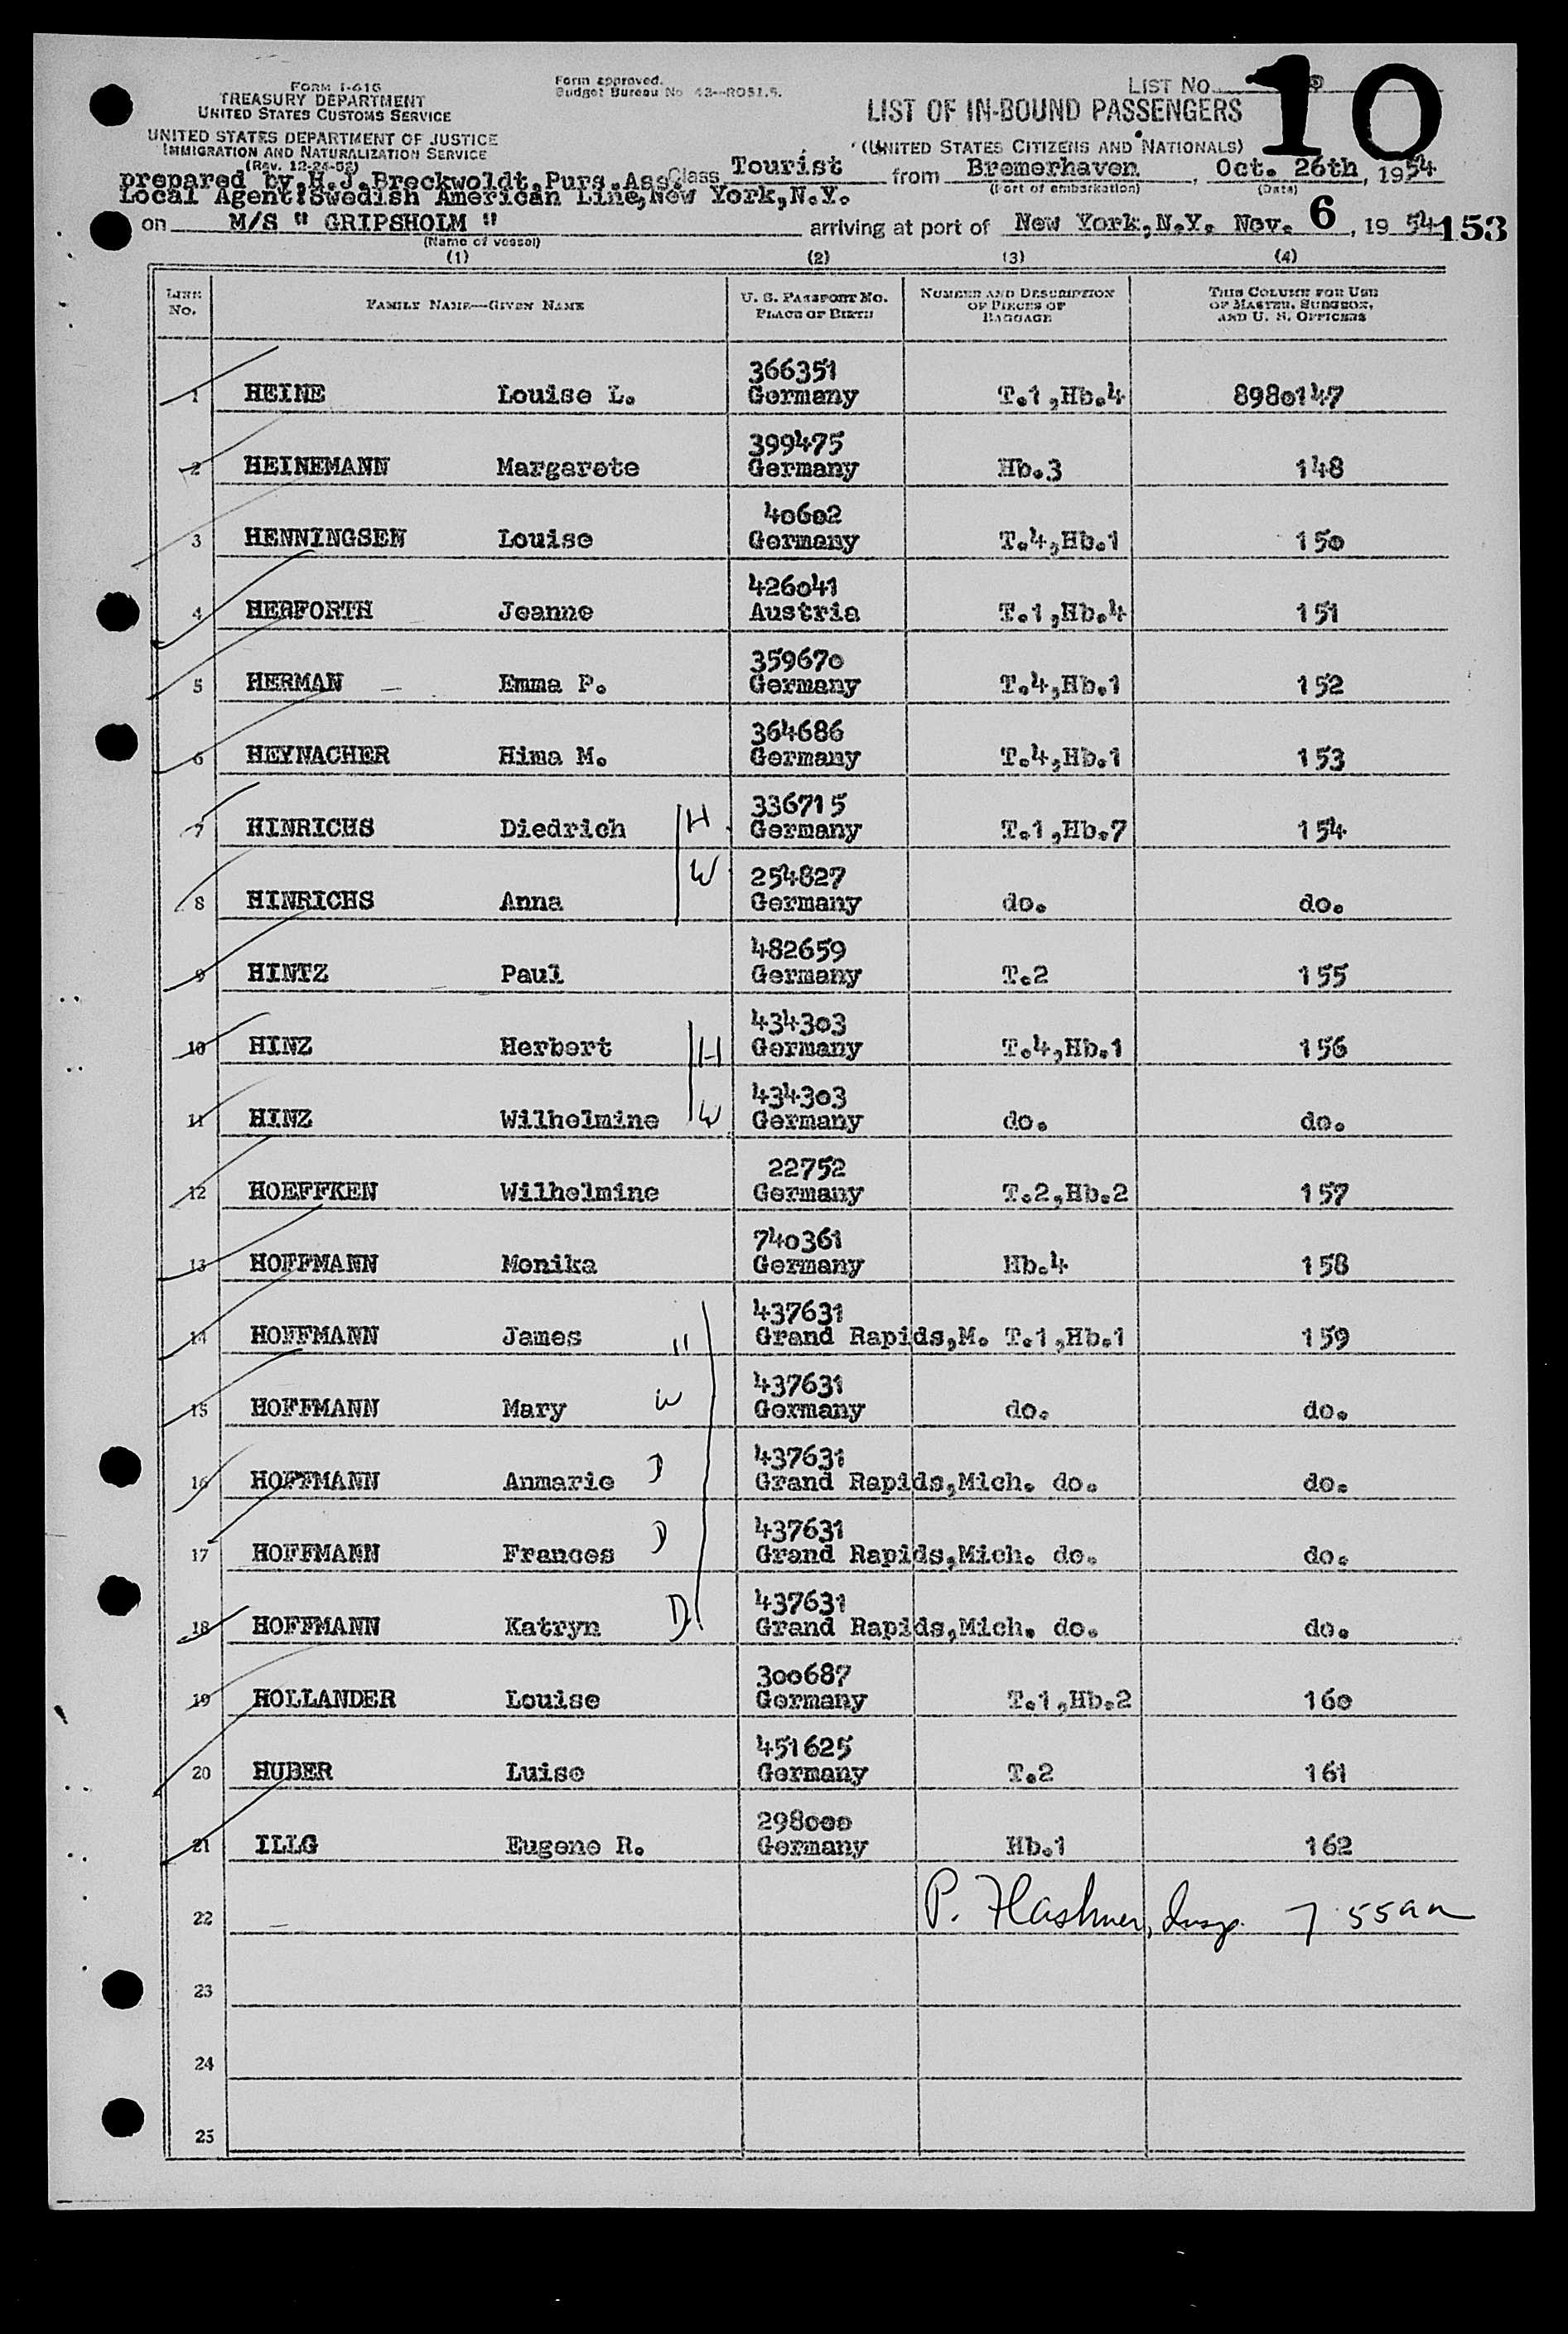 FORM I-416
TREASURY DEPARTMENT
UNITED STATES CUSTOMS SERVICE
UNITED STATES DEPARTMENT OF JUSTICE
IMMIGRATION AND NATURALIZATION SERVICE
(Rev. 12-24-52)
Form approved.
Budget Bureau No. 43-R051.5.
LIST No. 10
LIST OF IN-BOUND PASSENGERS
(UNITED STATES CITIZENS AND NATIONALS)
prepared by.H.J.Breckwoldt.Purs.Ass. Class Tourist from Bremerhaven, Oct. 26th, 1954
(Port of embarkation) (Date)
Local Agent:Swedish American Line,New York,N.Y.
on M/S " GRIPSHOLM " arriving at port of New York,N.Y. Nov. 6, 1954 153
(Name of vessel)
(1) (2) (3) (4)
LINE No. FAMILY NAME—GIVEN NAME U. S. PASSPORT NO. PLACE OF BIRTH NUMBER AND DESCRIPTION OF PIECES OF BAGGAGE THIS COLUMN FOR USE OF MASTER, SURGEON, AND U. S. OFFICERS
366351
1 HEINE Louise L. Germany T.1,Hb.4 8980147
399475
2 HEINEMANN Margarete Germany Hb.3 148
40602
3 HENNINGSEN Louise Germany T.4,Hb.1 150
426041
4 HERFORTH Jeanne Austria T.1,Hb.4 151
359670
5 HERMAN Emma P. Germany T.4,Hb.1 152
364686
6 HEYNACHER Hima M. Germany T.4,Hb.1 153
336715
7 HINRICHS Diedrich H Germany T.1,Hb.7 154
254827
8 HINRICHS Anna W Germany do. do.
482659
9 HINTZ Paul Germany T.2 155
434303
10 HINZ Herbert H Germany T.4,Hb.1 156
434303
11 HINZ Wilhelmine W Germany do. do.
22752
12 HOEFFKEN Wilhelmine Germany T.2,Hb.2 157
740361
13 HOFFMANN Monika Germany Hb.4 158
437631
14 HOFFMANN James H Grand Rapids,M. T.1,Hb.1 159
437631
15 HOFFMANN Mary W Germany do. do.
437631
16 HOFFMANN Anmarie D Grand Rapids,Mich. do. do.
437631
17 HOFFMANN Frances D Grand Rapids,Mich. do. do.
437631
18 HOFFMANN Katryn D Grand Rapids,Mich. do. do.
300687
19 HOLLANDER Louise Germany T.1,Hb.2 160
451625
20 HUBER Luise Germany T.2 161
298000
21 ILLG Eugene R. Germany Hb.1 162
22 P. Flashner, Insp. 7 55 am
23
24
25